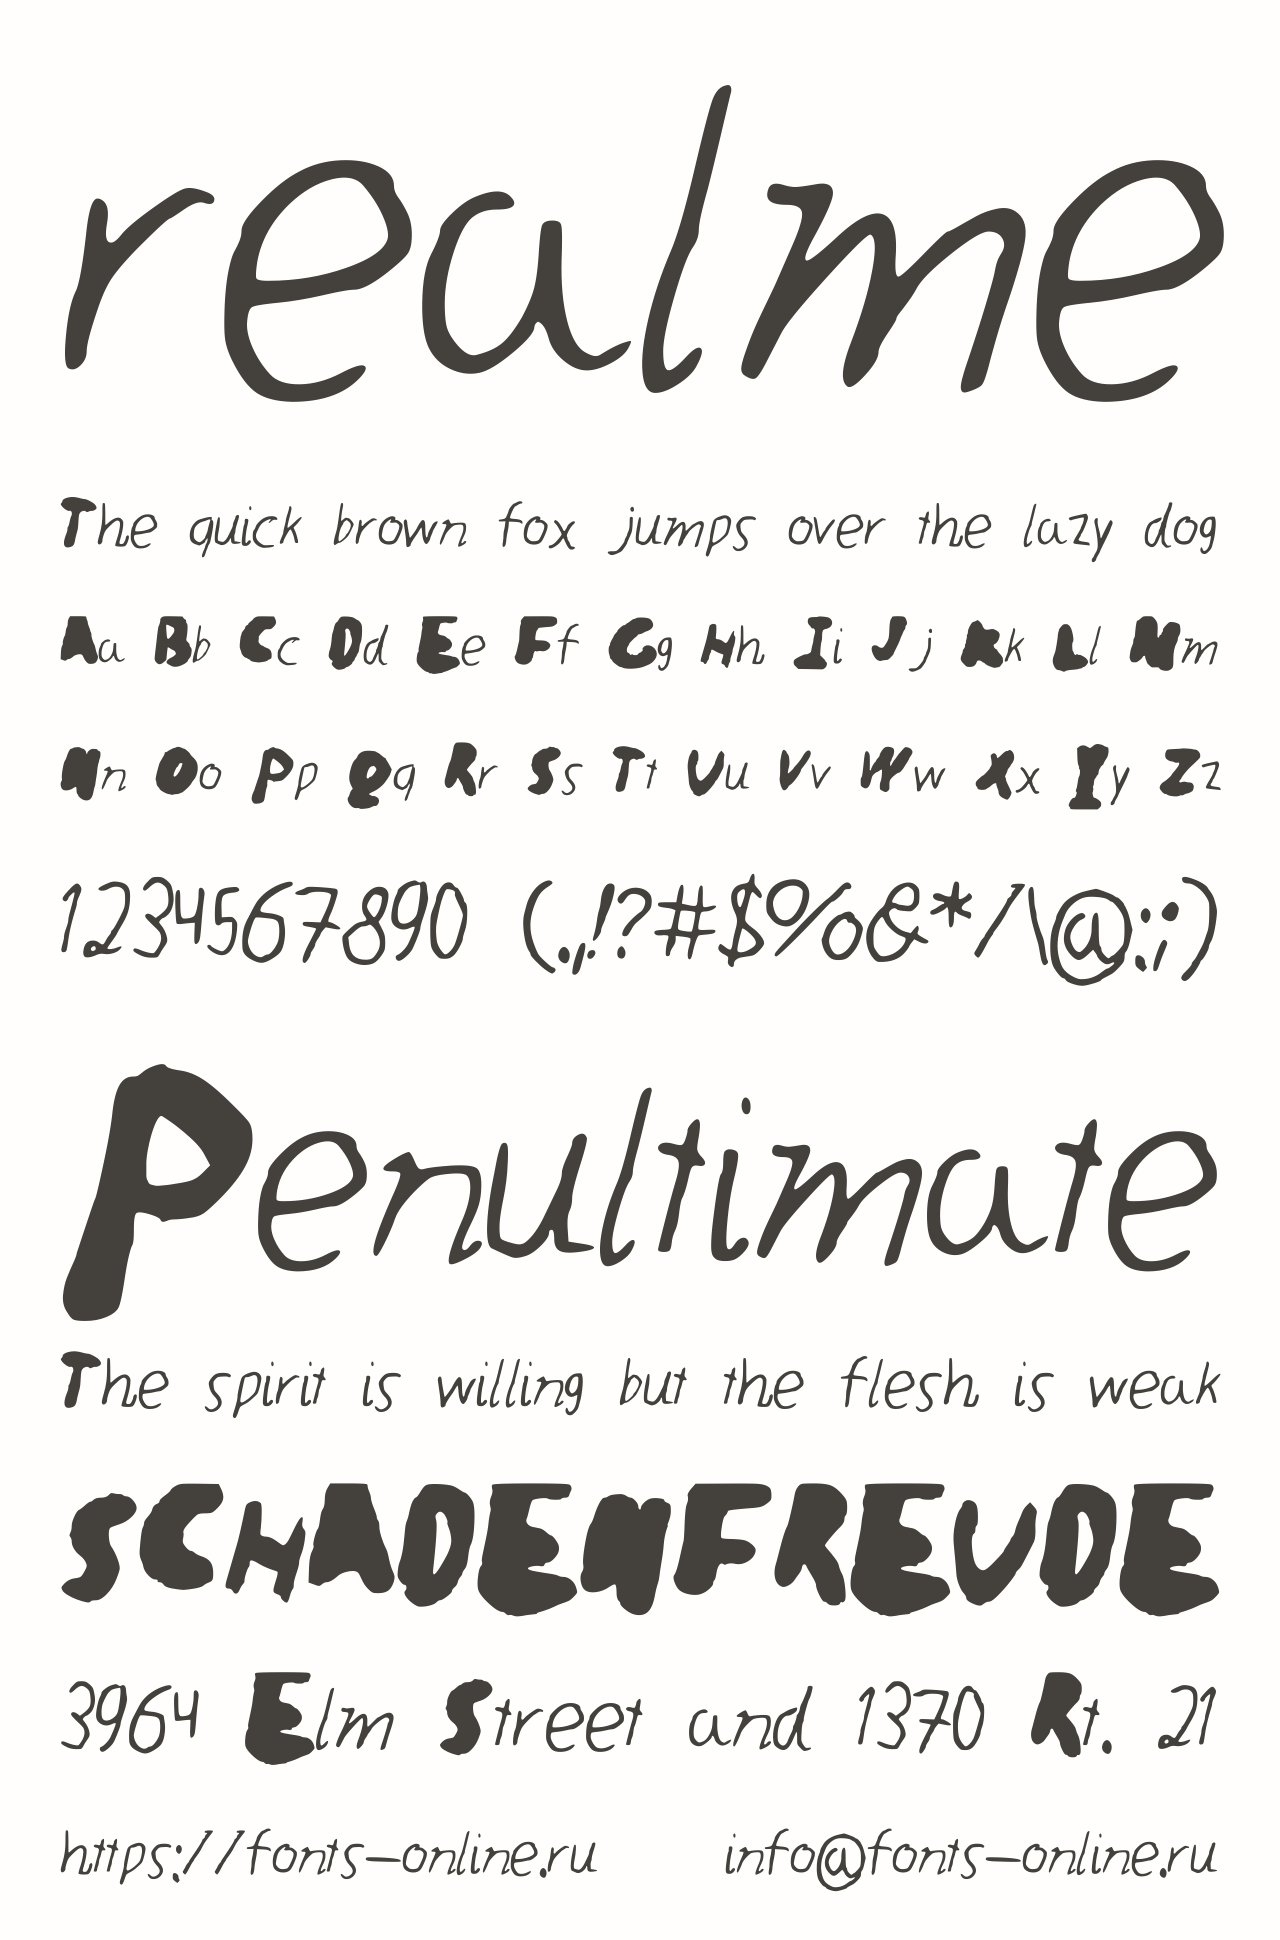 realme
The quick brown fox jumps over the lazy dog
Aa Bb Cc Dd Ee Ff Gg Hh Ii Jj Kk Ll Mm
Nn Oo Pp Qq Rr Ss Tt Uu Vv Ww Xx Yy Zz
1234567890 (.,!?#$%&*/\@:;)
Penultimate
The spirit is willing but the flesh is weak
SCHADENFREUDE
3964 Elm Street and 1370 Rt. 21
https://fonts-online.ru info@fonts-online.ru